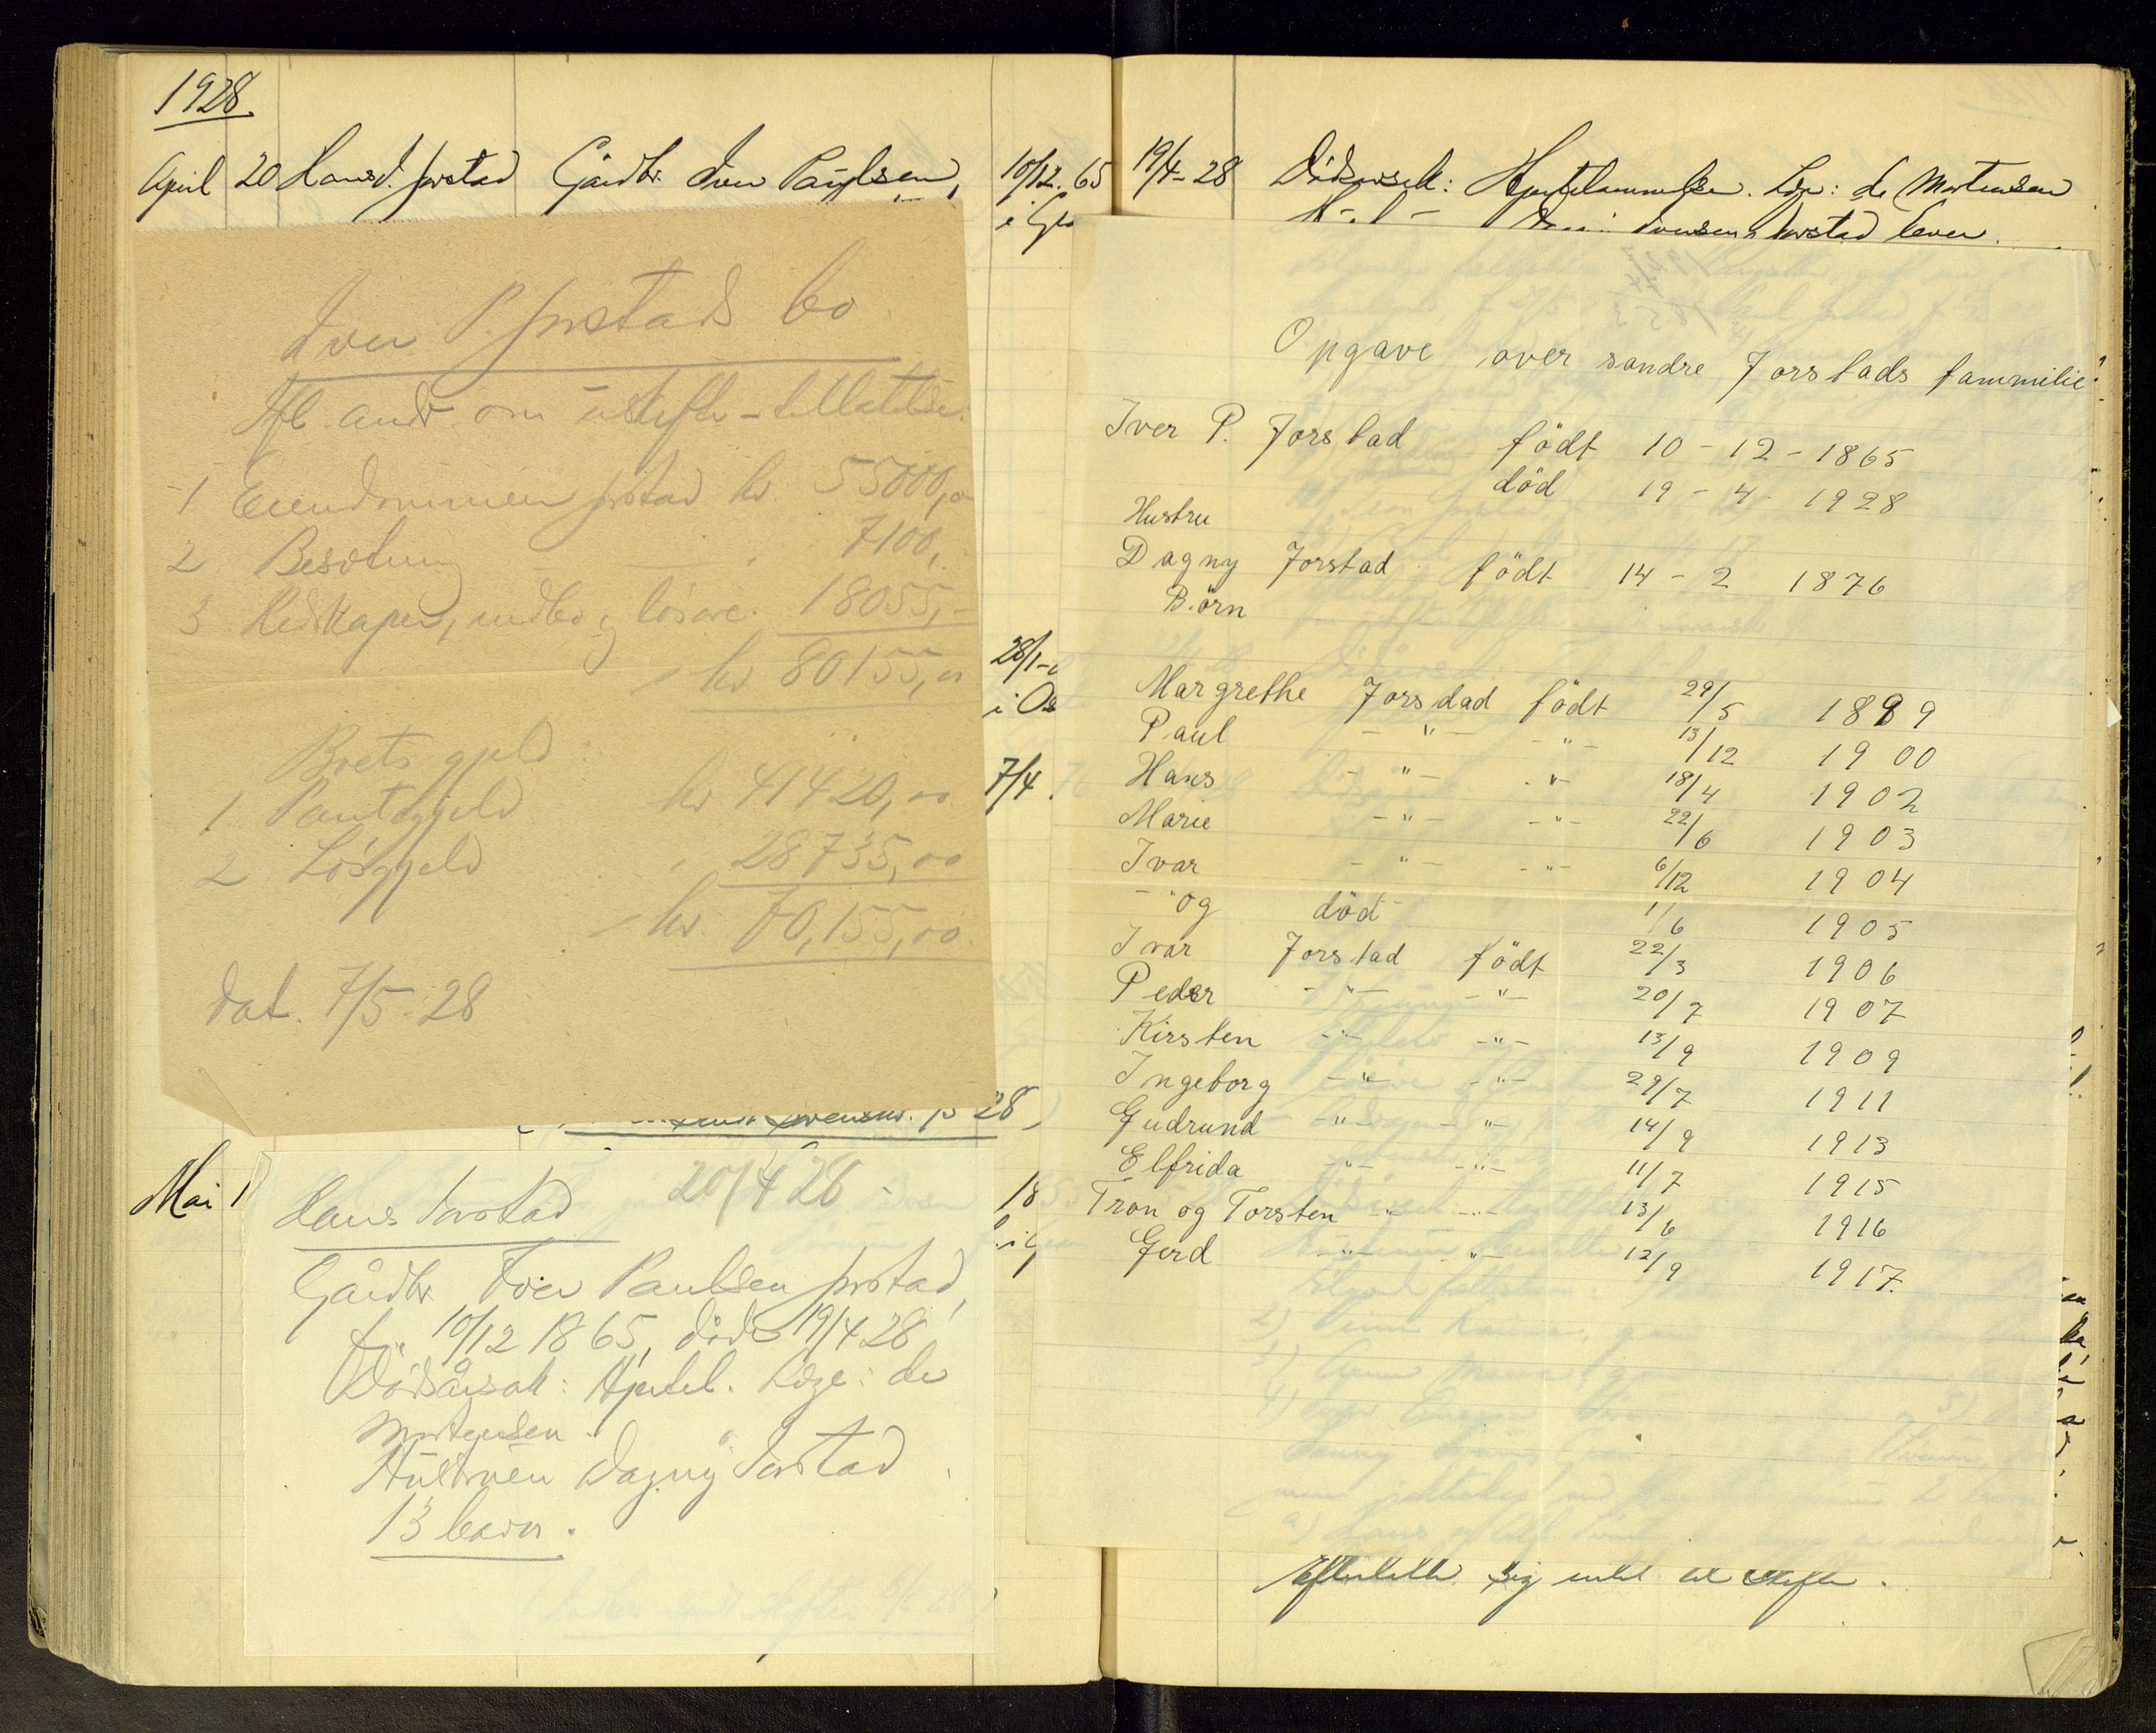 1928.
April 20 Hans J. Jorstad Gårdbr. Iver Paulsen, 10/12. 65 19/4-28 Dödsårsak: Hjertelammelse. Læge: dr Mortensen
Jorstad lever.
Iver P. Jorstads bo
Ifl. andr. om uskifte-tillatelse.
1 Eiendommen Jorstad kr. 55000,00
2 Besetning 7100,
3 Redskaper, indbo og lösöre. 18055,-
kr 80155,00
Boets gjeld
1 Pantegjeld kr 41420,00
2 Lösgjeld 28735,00
kr. 70,155,00
dat. 7/5-28
28)
28/1-
7/4.
Mai 1
18
Hans Jorstad 20/4 28 -
Gårdbr Iver Paulsen Jorstad,
f. 10/12 1865, död 19/4 28,
Dödsårsak: Hjertel. Læge: dr
Mortensen.
Hustruen Dagny Jorstad
13 barn.
Opgave over søndre Jorstads fammilie
Iver P. Jorstad födt 10-12-1865
död 19-4-1928
Hustru
Dagny Jorstad födt 14-2 1876
Börn
Margrethe Jorsdad födt 29/5 1899
Paul -"- -"- 13/12 1900
Hans -"- -"- 18/4 1902
Marie -"- -"- 22/6 1903
Ivar -"- -"- 6/12 1904
-"og död 1/6 1905
Ivar Jorstad födt 22/3 1906
Peder -"- -"- 20/7 1907
Kirsten -"- -"- 13/9 1909
Ingeborg -"- -"- 29/7 1911
Gudrund -"- -"- 14/9 1913
Elfrida -"- -"- 11/7 1915
Tron og Torsten -"- -"- 13/6 1916
Gerd -"- -"- 12/9 1917.
Efterlatte sig intet at skifte.